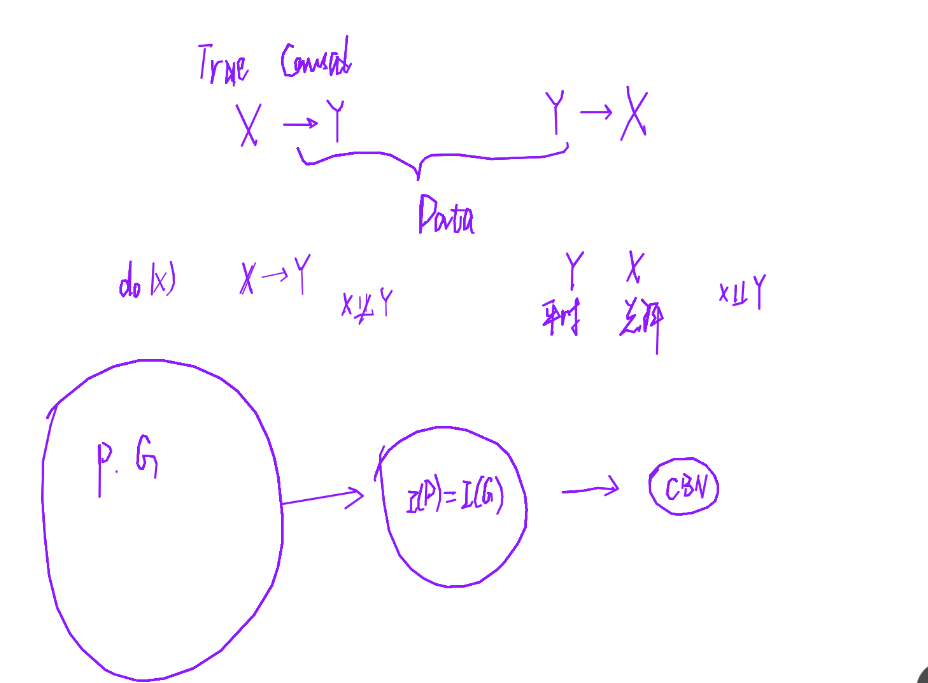 True Causal
X → Y    Y → X
Data
do(x)    X → Y    Y    X
X⊥̸⊥Y    平时    总评    X⊥⊥Y
P. G
I(P)=I(G)
CBN